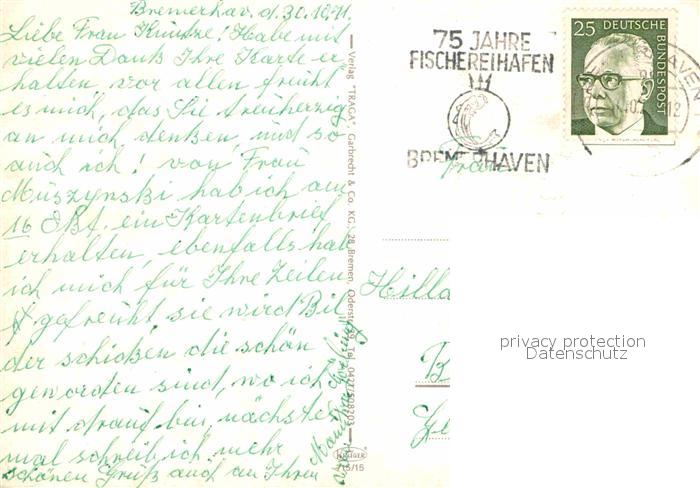 Bremerhav. d. 30.10.71.
Liebe Frau Kuntze! Habe mit
vielen Dank Ihre Karte er
halten, vor allen freuht
es mich, das Sie treuherzig
an mich denken, und so
auch ich! von Frau
Muszynski hab ich am
16 Okt. ein Kartenbrief
erhalten, ebenfalls hab
ich mich für Ihre Zeilen
gefreuht sie wird Bil
der schicken die schön
geworden sind, wo ich
mit drauf bin, nächste
mal schreib ich mehr
schönen Gruß auch an Ihren
Verlag "TRAGA" Garbrecht & Co. KG, 28 Bremen, Oderstr. 39, Tel. 0421/508203
KRÜGER
715/15
75 JAHRE
FISCHEREIHAFEN
BREMERHAVEN
25 DEUTSCHE
BUNDESPOST
Frau
Hilla
B
Ge
privacy protection
Datenschutz